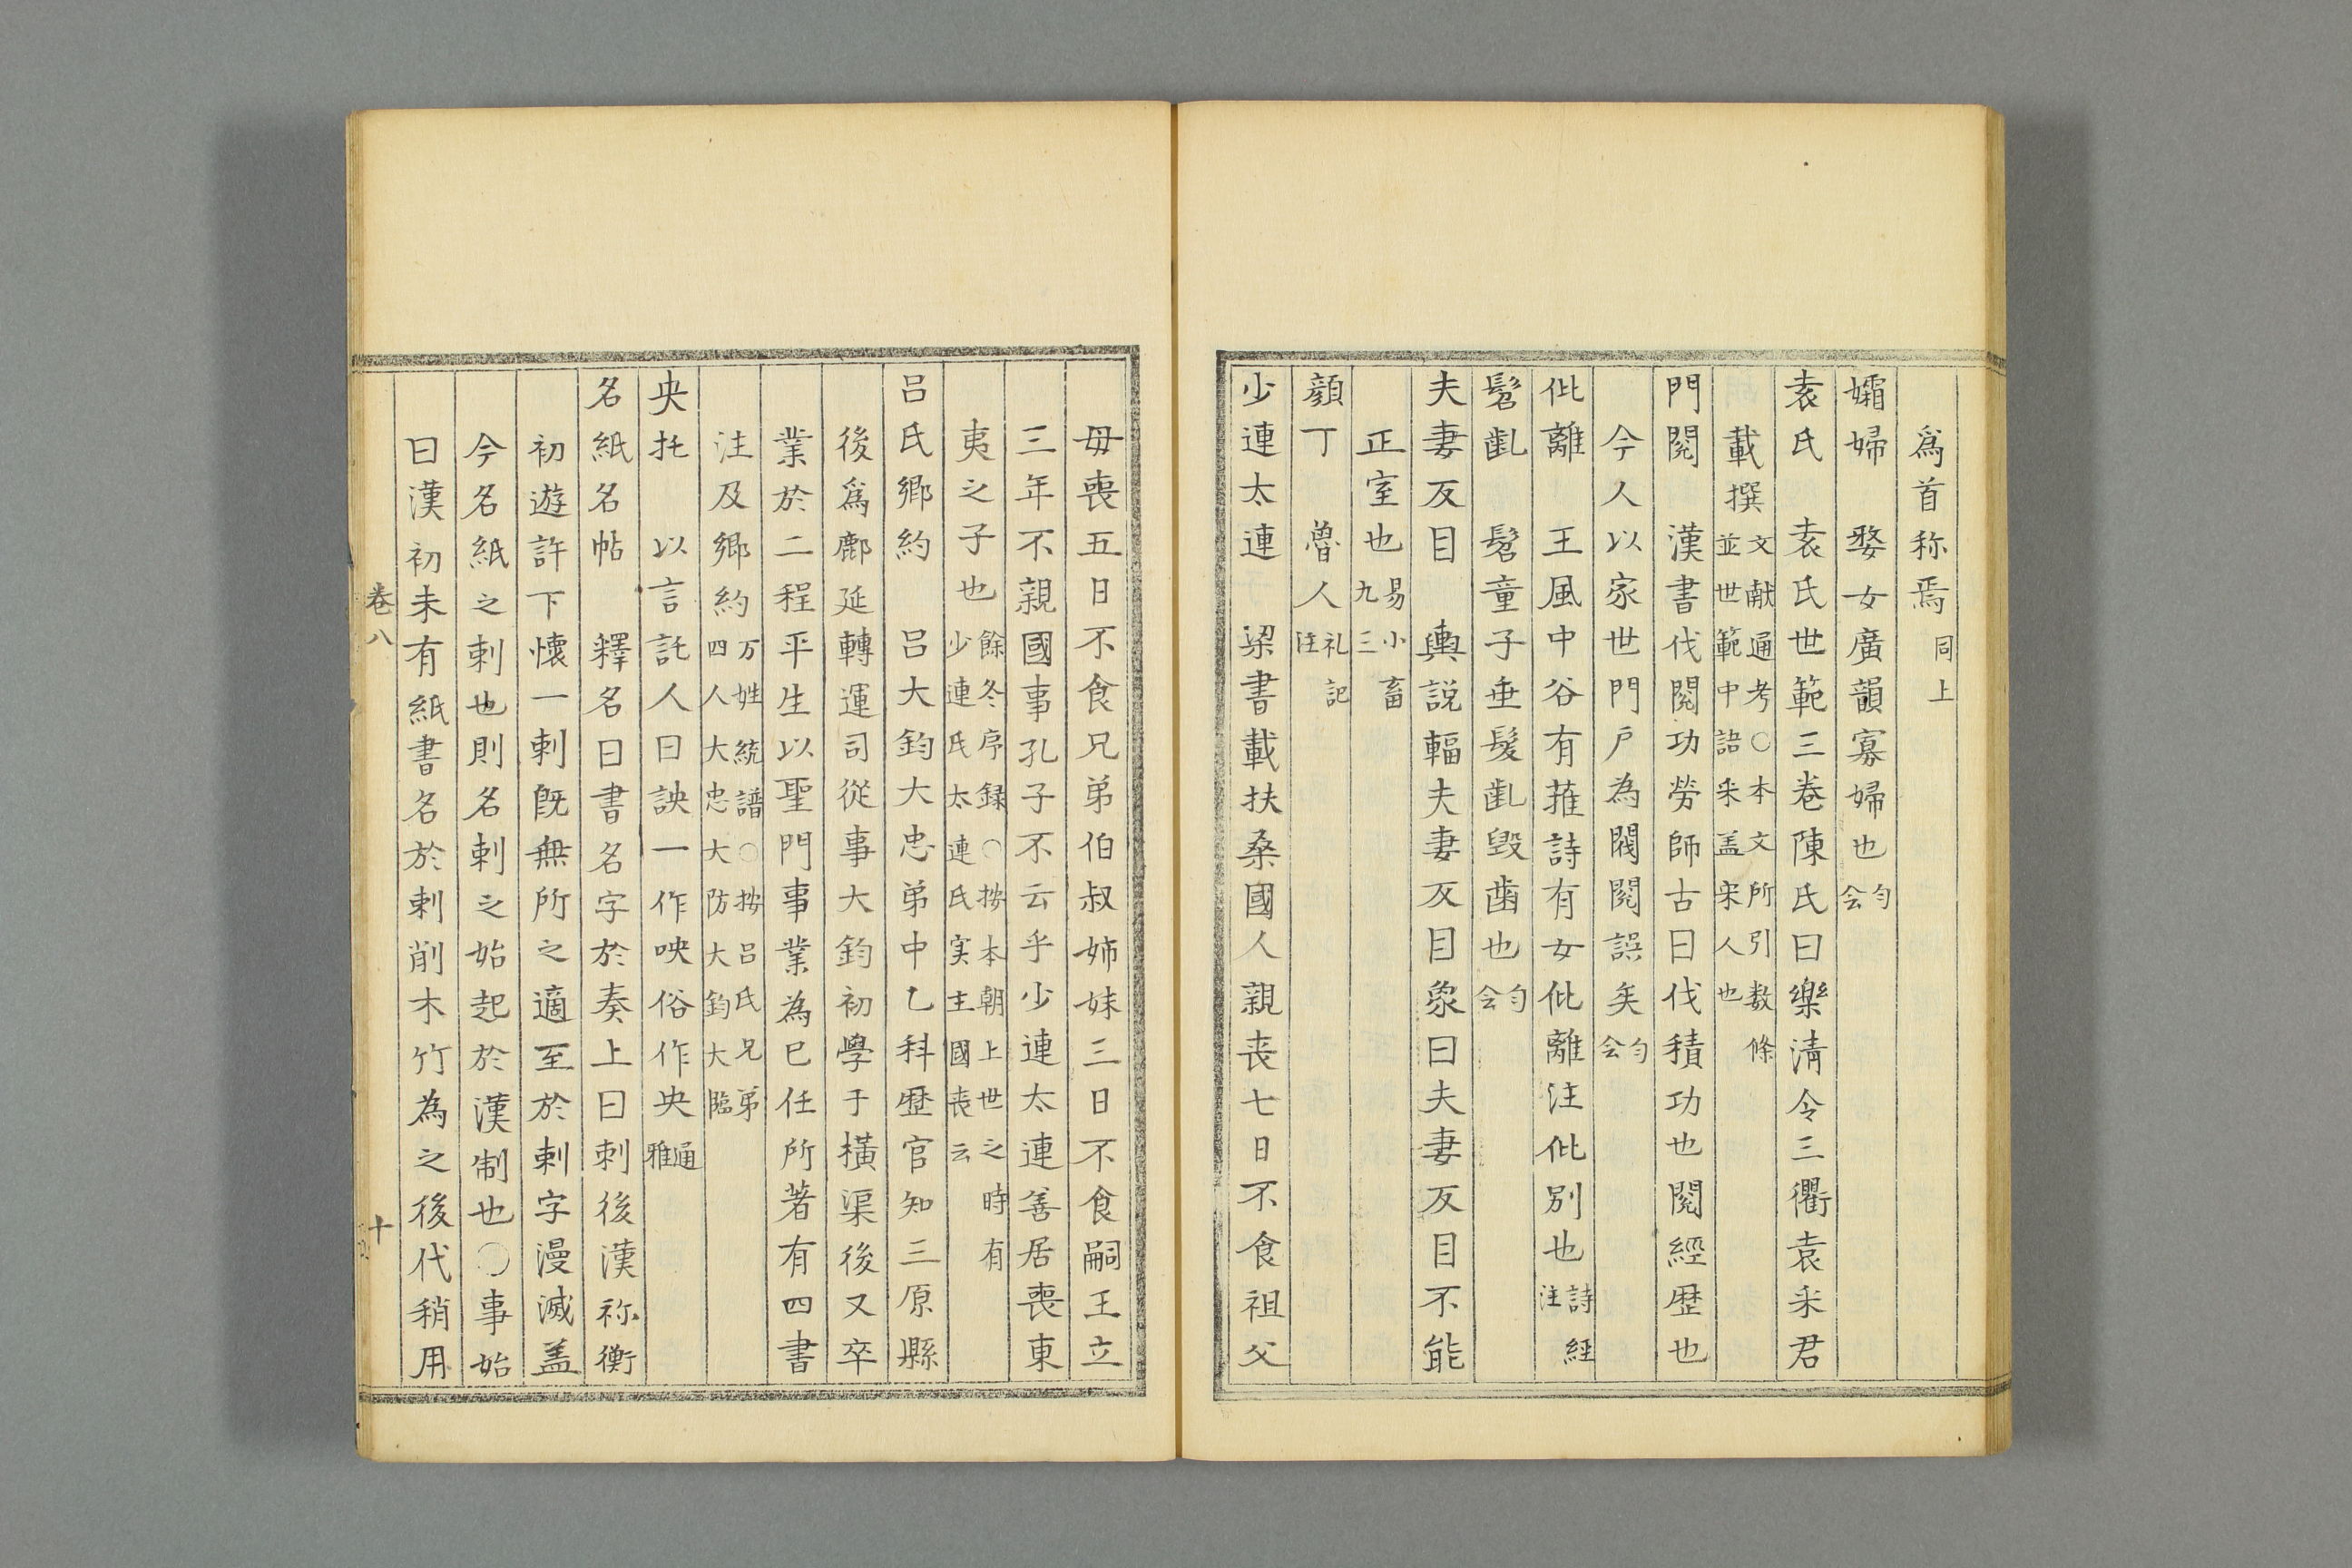 爲首称焉同上
孀婦　婺女廣韻寡婦也匀会
袁氏　袁氏世範三卷陳氏曰樂淸令三衢袁采君
載撰文献通考〇本文所引数條並世範中語采盖宋人也
門閥　漢書伐閱功勞師古曰伐積功也閱經歴也
今人以家世門戶為閥閱誤矣匀会
仳離　王風中谷有蓷詩有女仳離注仳別也詩經注
髫齓　髫童子垂髮齓毁齒也匀会
夫妻反目　輿説輻夫妻反目象曰夫妻反目不能
正室也易小畜九三
顔丁　魯人礼記注
少連太連　梁書載扶桑國人親丧七日不食祖父
母喪五日不食兄弟伯叔姉妹三日不食嗣王立
三年不親國事孔子不云乎少連太連善居喪東
夷之子也餘冬序録〇按本朝上世之時有少連氏太連氏実主國丧云
吕氏鄉約　吕大鈞大忠弟中乙科歴官知三原縣
後爲鄜延轉運司從事大鈞初學于橫渠後又卒
業於二程平生以聖門事業為已任所著有四書
注及鄉約万姓統譜〇按呂氏兄弟四人大忠大防大鈞大臨
央托　以言託人曰詇一作咉俗作央通雅
名紙名帖　釋名曰書名字於奏上曰刺後漢祢衡
初遊許下懷一刺旣無所之適至於刺字漫滅盖
今名紙之刺也則名刺之始起於漢制也〇事始
曰漢初未有紙書名於刺削木竹為之後代稍用
卷八　十